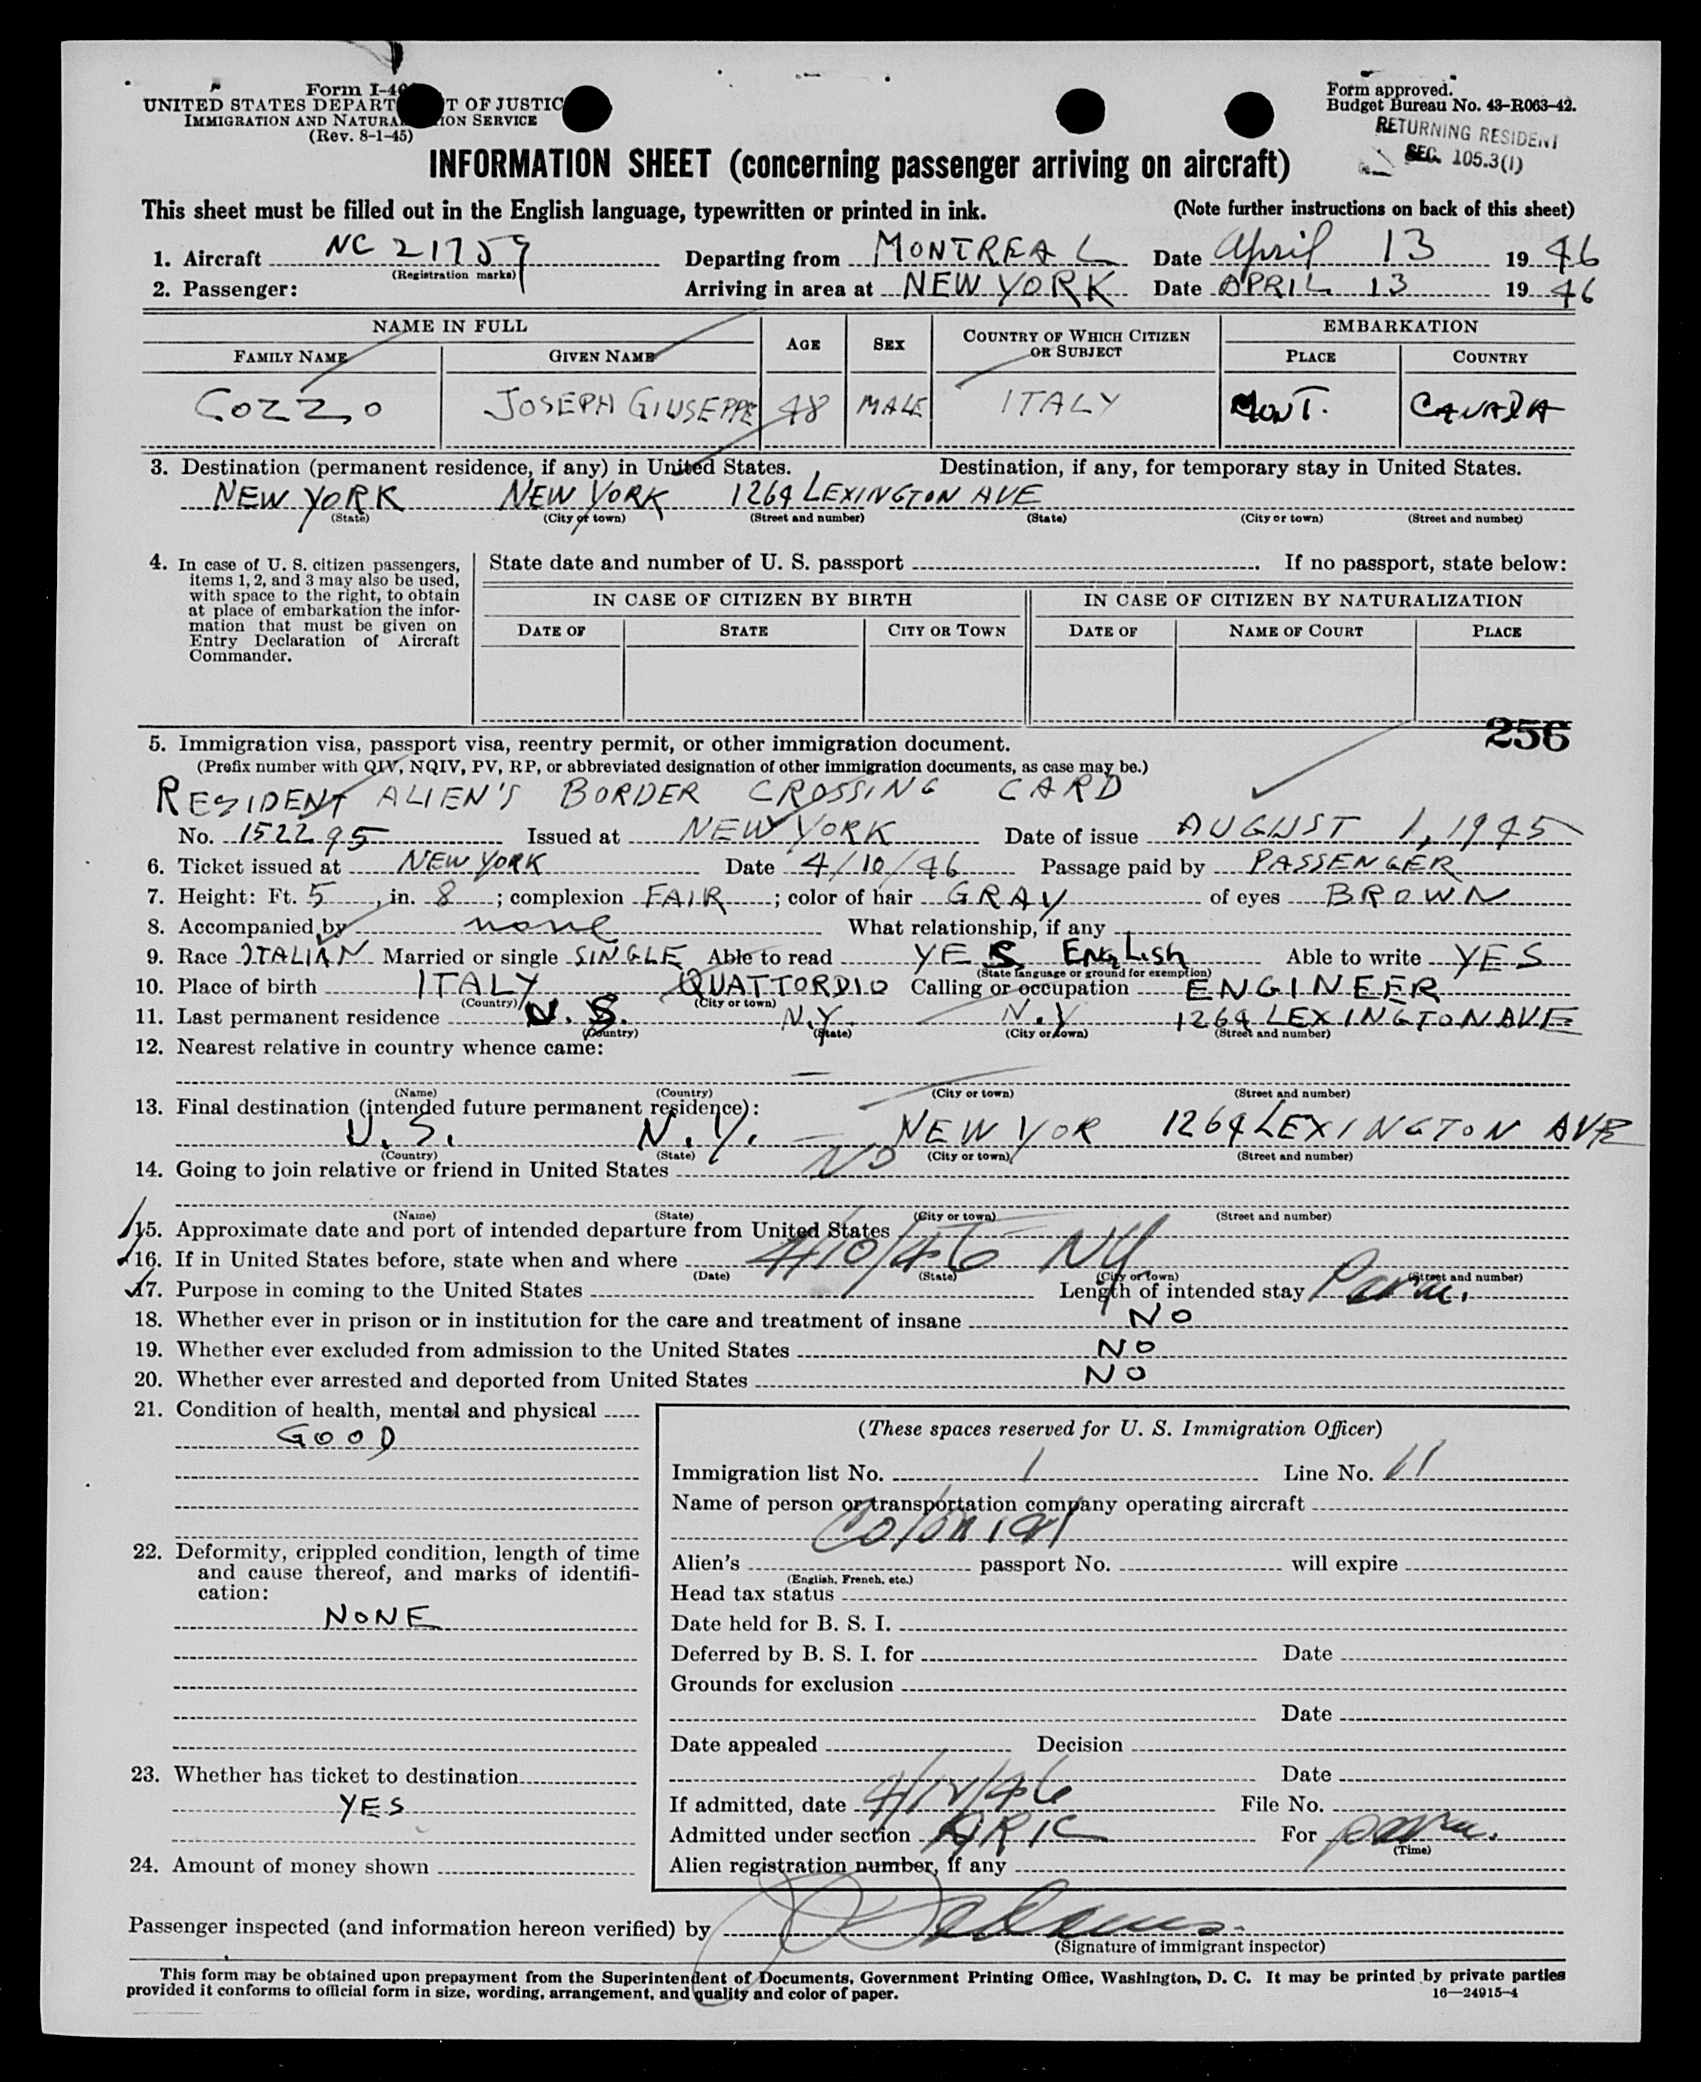 Form I-40
UNITED STATES DEPART T OF JUSTIC
IMMIGRATION AND NATURA ION SERVICE
(Rev. 8-1-45)
Form approved.
Budget Bureau No. 43-R063-42.
RETURNING RESIDENT
SEC. 105.3(1)
INFORMATION SHEET (concerning passenger arriving on aircraft)
This sheet must be filled out in the English language, typewritten or printed in ink. (Note further instructions on back of this sheet)
1. Aircraft NC 21759 Departing from MONTREAL Date April 13 1946
(Registration marks)
2. Passenger: Arriving in area at NEW YORK Date APRIL 13 1946
NAME IN FULL EMBARKATION
FAMILY NAME GIVEN NAME AGE SEX COUNTRY OF WHICH CITIZEN OR SUBJECT PLACE COUNTRY
COZZO JOSEPH GIUSEPPE 48 MALE ITALY MONT. CANADA
3. Destination (permanent residence, if any) in United States. Destination, if any, for temporary stay in United States.
NEW YORK NEW YORK 1264 LEXINGTON AVE
(State) (City or town) (Street and number) (State) (City or town) (Street and number)
4. In case of U. S. citizen passengers, items 1, 2, and 3 may also be used, with space to the right, to obtain at place of embarkation the information that must be given on Entry Declaration of Aircraft Commander.
State date and number of U. S. passport . If no passport, state below:
IN CASE OF CITIZEN BY BIRTH IN CASE OF CITIZEN BY NATURALIZATION
DATE OF STATE CITY OR TOWN DATE OF NAME OF COURT PLACE
256
5. Immigration visa, passport visa, reentry permit, or other immigration document.
(Prefix number with QIV, NQIV, PV, RP, or abbreviated designation of other immigration documents, as case may be.)
RESIDENT ALIEN'S BORDER CROSSING CARD
No. 1522295 Issued at NEW YORK Date of issue AUGUST 1, 1945
6. Ticket issued at NEW YORK Date 4/10/46 Passage paid by PASSENGER
7. Height: Ft. 5, in. 8; complexion FAIR; color of hair GRAY of eyes BROWN
8. Accompanied by none What relationship, if any
9. Race ITALIAN Married or single SINGLE Able to read YES ENGLISH Able to write YES
(State language or ground for exemption)
10. Place of birth ITALY QUATTORDIO Calling or occupation ENGINEER
(Country) (City or town)
11. Last permanent residence U.S. N.Y. N.Y 1264 LEXINGTON AVE
(Country) (State) (City or town) (Street and number)
12. Nearest relative in country whence came:
—
(Name) (Country) (City or town) (Street and number)
13. Final destination (intended future permanent residence):
U.S. N.Y. — NEW YOR 1264 LEXINGTON AVE
(Country) (State) (City or town) (Street and number)
14. Going to join relative or friend in United States NO
(Name) (State) (City or town) (Street and number)
15. Approximate date and port of intended departure from United States
16. If in United States before, state when and where 4/10/46 NY
(Date) (State) (City or town) (Street and number)
17. Purpose in coming to the United States Length of intended stay Perm.
18. Whether ever in prison or in institution for the care and treatment of insane NO
19. Whether ever excluded from admission to the United States NO
20. Whether ever arrested and deported from United States NO
21. Condition of health, mental and physical
GOOD
22. Deformity, crippled condition, length of time and cause thereof, and marks of identification:
NONE
23. Whether has ticket to destination
YES
24. Amount of money shown
(These spaces reserved for U. S. Immigration Officer)
Immigration list No. 1 Line No. 11
Name of person or transportation company operating aircraft
Colonial
Alien's passport No. will expire
(English, French, etc.)
Head tax status
Date held for B. S. I.
Deferred by B. S. I. for Date
Grounds for exclusion
Date
Date appealed Decision
Date
If admitted, date 4/12/46 File No.
Admitted under section ARIC For perm.
(Time)
Alien registration number, if any
Passenger inspected (and information hereon verified) by
(Signature of immigrant inspector)
This form may be obtained upon prepayment from the Superintendent of Documents, Government Printing Office, Washington, D. C. It may be printed by private parties
provided it conforms to official form in size, wording, arrangement, and quality and color of paper. 16—24915-4